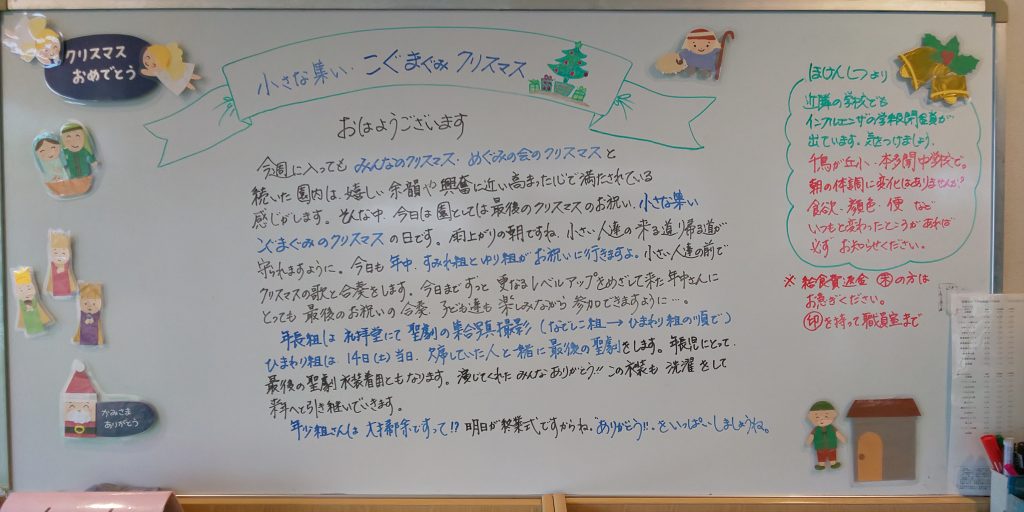 クリスマス
おめでとう
小さな集い・こぐまぐみクリスマス
おはようございます
今週に入っても みんなのクリスマス・めぐみの会のクリスマスと
続いた園内は、嬉しい余韻や興奮に近い高まった心で満たされている
感じがします。そんな中、今日は園としては最後のクリスマスのお祝い、小さな集い
こぐまぐみのクリスマスの日です。雨上がりの朝ですね、小さい人達の来る道り帰る道が
守れますように。今日も年中、すみれ組とゆり組がお祝いに行きますよ。小さい人達の前で
クリスマスの歌と合奏をします。今日までずっと更なるレベルアップをめざして来た年中さんに
とっても最後のお祝いの合奏、子ども達も楽しみながら参加できますように…。
年長組は礼拝堂にて聖劇の集合写真撮影(なでしこ組→ひまわり組の順で)
ひまわり組は、14日(土)当日、欠席していた人と一緒に最後の聖劇をします。年長児にとって、
最後の聖劇衣装着用ともなります。演じてくれたみんなありがとう!!この衣装も洗濯をして
来年へと引き継いでいきます。
年少組さんは大掃除ですって!?明日が終業式ですからね、ありがとう!!をいっぱいしましょうね。
ほけんしつより
近隣の学校でも
インフルエンザの学級閉鎖が
出ています。気をつけましょう。
千鳥が丘小・本多聞中学校で。
朝の体調に変化はありませんか?
食欲・顔色・便など
いつもと変わったところがあれば
必ずお知らせください。
※給食費返金 ㊍の方は
お急ぎください。
㊞を持って職員室まで
かみさま
ありがとう